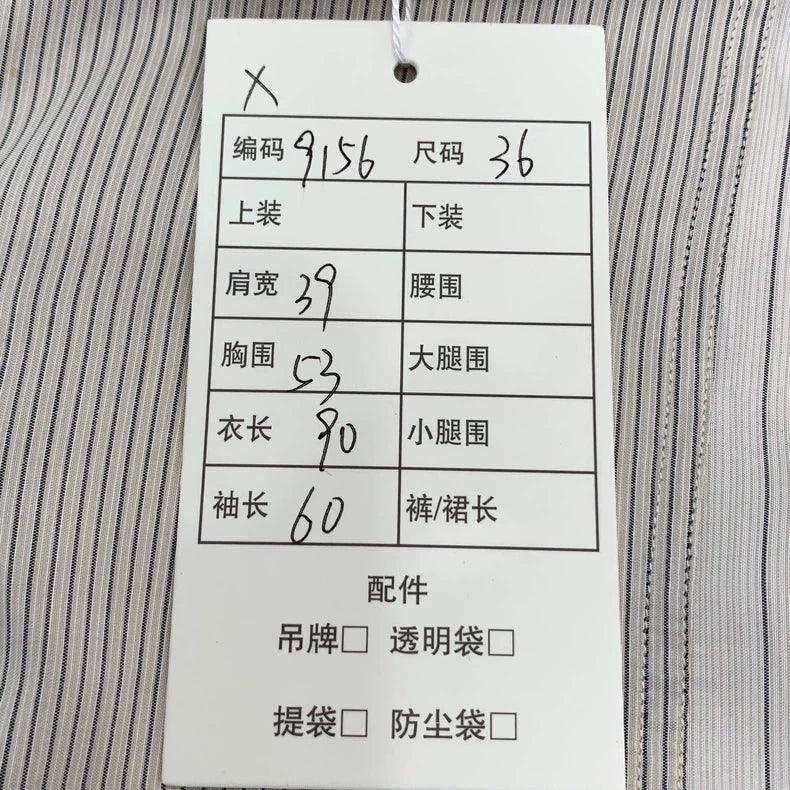 X
编码 9156 尺码 36
上装 下装
肩宽 39 腰围
胸围 53 大腿围
衣长 90 小腿围
袖长 60 裤/裙长
配件
吊牌□ 透明袋□
提袋□ 防尘袋□